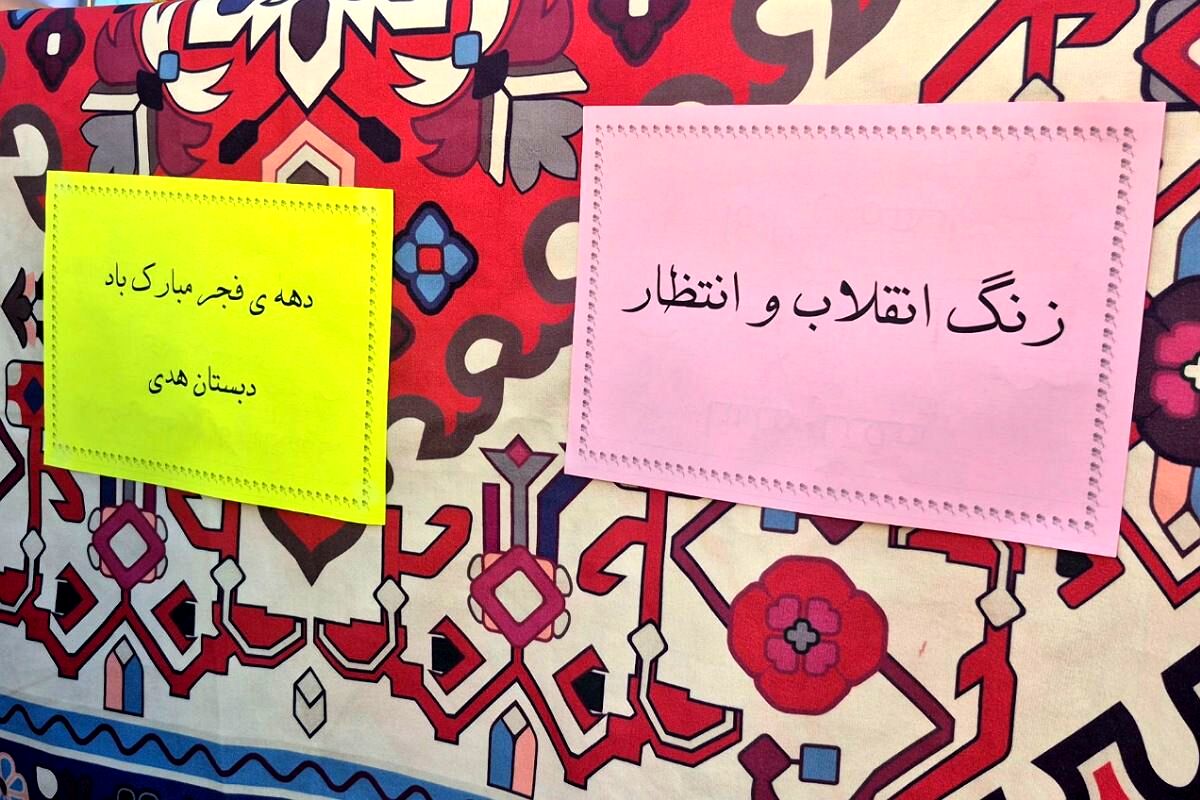 زنگ انقلاب و انتظار
دهه ی فجر مبارک باد
دبستان هدی